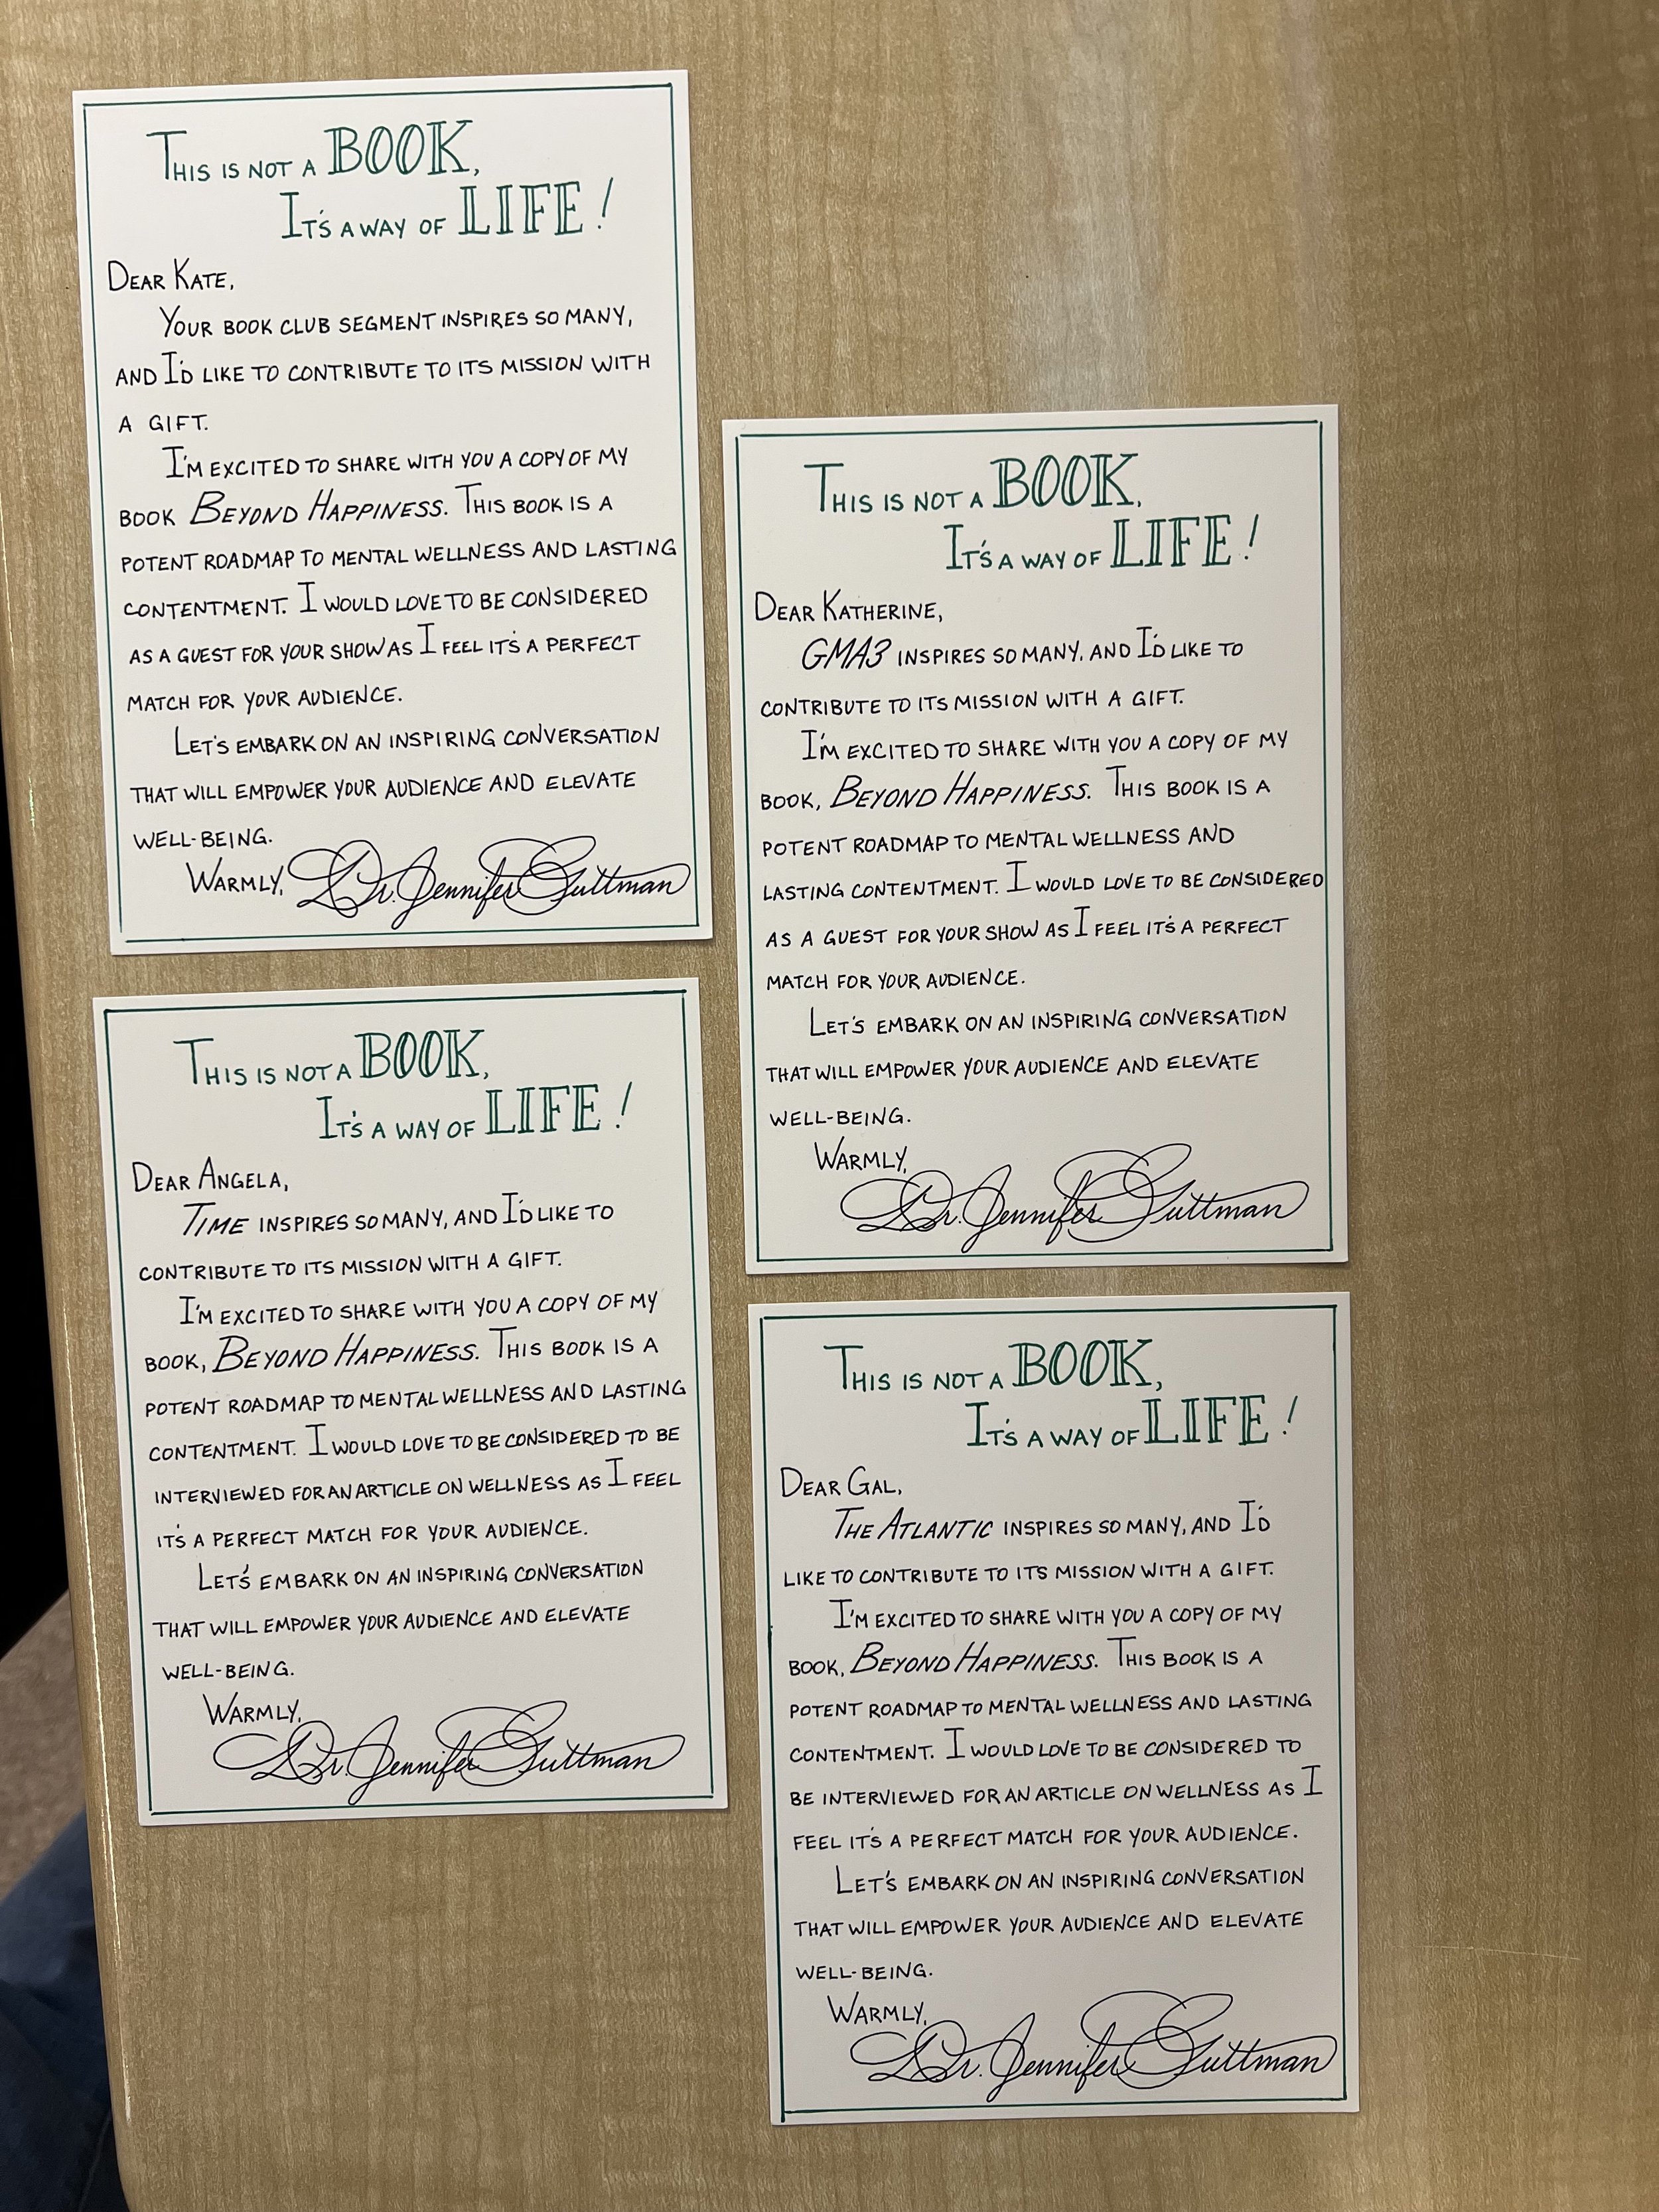 THIS IS NOT A BOOK,
IT'S A WAY OF LIFE!
DEAR KATE,
YOUR BOOK CLUB SEGMENT INSPIRES SO MANY,
AND I'D LIKE TO CONTRIBUTE TO ITS MISSION WITH
A GIFT.
I'M EXCITED TO SHARE WITH YOU A COPY OF MY
BOOK BEYOND HAPPINESS. THIS BOOK IS A
POTENT ROADMAP TO MENTAL WELLNESS AND LASTING
CONTENTMENT. I WOULD LOVE TO BE CONSIDERED
AS A GUEST FOR YOUR SHOW AS I FEEL IT'S A PERFECT
MATCH FOR YOUR AUDIENCE.
LET'S EMBARK ON AN INSPIRING CONVERSATION
THAT WILL EMPOWER YOUR AUDIENCE AND ELEVATE
WELL-BEING.
WARMLY, Dr. Jennifer Guttman
THIS IS NOT A BOOK,
IT'S A WAY OF LIFE!
DEAR ANGELA,
TIME INSPIRES SO MANY, AND I'D LIKE TO
CONTRIBUTE TO ITS MISSION WITH A GIFT.
I'M EXCITED TO SHARE WITH YOU A COPY OF MY
BOOK, BEYOND HAPPINESS. THIS BOOK IS A
POTENT ROADMAP TO MENTAL WELLNESS AND LASTING
CONTENTMENT. I WOULD LOVE TO BE CONSIDERED TO BE
INTERVIEWED FOR AN ARTICLE ON WELLNESS AS I FEEL
IT'S A PERFECT MATCH FOR YOUR AUDIENCE.
LET'S EMBARK ON AN INSPIRING CONVERSATION
THAT WILL EMPOWER YOUR AUDIENCE AND ELEVATE
WELL-BEING.
WARMLY,
Dr. Jennifer Guttman
THIS IS NOT A BOOK,
IT'S A WAY OF LIFE!
DEAR KATHERINE,
GMA3 INSPIRES SO MANY, AND I'D LIKE TO
CONTRIBUTE TO ITS MISSION WITH A GIFT.
I'M EXCITED TO SHARE WITH YOU A COPY OF MY
BOOK, BEYOND HAPPINESS. THIS BOOK IS A
POTENT ROADMAP TO MENTAL WELLNESS AND
LASTING CONTENTMENT. I WOULD LOVE TO BE CONSIDERED
AS A GUEST FOR YOUR SHOW AS I FEEL IT'S A PERFECT
MATCH FOR YOUR AUDIENCE.
LET'S EMBARK ON AN INSPIRING CONVERSATION
THAT WILL EMPOWER YOUR AUDIENCE AND ELEVATE
WELL-BEING.
WARMLY,
Dr. Jennifer Guttman
THIS IS NOT A BOOK,
IT'S A WAY OF LIFE!
DEAR GAL,
THE ATLANTIC INSPIRES SO MANY, AND I'D
LIKE TO CONTRIBUTE TO ITS MISSION WITH A GIFT.
I'M EXCITED TO SHARE WITH YOU A COPY OF MY
BOOK, BEYOND HAPPINESS. THIS BOOK IS A
POTENT ROADMAP TO MENTAL WELLNESS AND LASTING
CONTENTMENT. I WOULD LOVE TO BE CONSIDERED TO
BE INTERVIEWED FOR AN ARTICLE ON WELLNESS AS I
FEEL IT'S A PERFECT MATCH FOR YOUR AUDIENCE.
LET'S EMBARK ON AN INSPIRING CONVERSATION
THAT WILL EMPOWER YOUR AUDIENCE AND ELEVATE
WELL-BEING.
WARMLY,
Dr. Jennifer Guttman